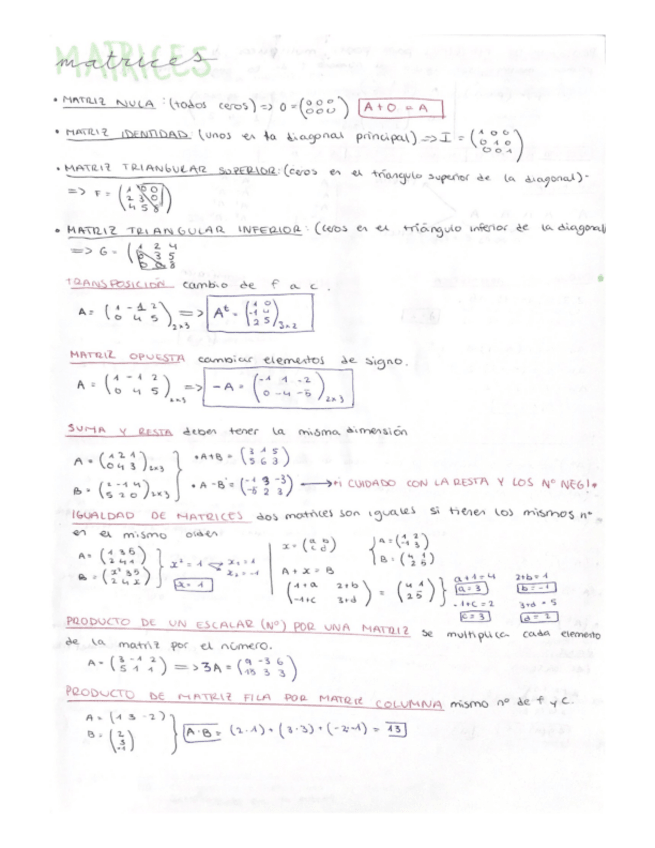 matrices
• MATRIZ NULA: (todos ceros) => O = (0 0 0 / 0 0 0) A + O = A
• MATRIZ IDENTIDAD: (unos en la diagonal principal) => I = (1 0 0 / 0 1 0 / 0 0 1)
• MATRIZ TRIANGULAR SUPERIOR: (ceros en el triangulo superior de la diagonal).
=> F = (1 0 0 / 2 3 0 / 4 5 8)
• MATRIZ TRIANGULAR INFERIOR: (ceros en el triángulo inferior de la diagonal
=> G = (1 2 4 / 0 3 5 / 0 0 8
TRANSPOSICIÓN cambio de f a c.
A = (1 -1 2 / 0 4 5)2x3 => At = (1 0 / -1 4 / 2 5)3x2
MATRIZ OPUESTA cambiar elementos de signo.
A = (1 -1 2 / 0 4 5)2x3 => -A = (-1 1 -2 / 0 -4 -5)2x3
SUMA Y RESTA deben tener la misma dimensión
A = (1 2 1 / 0 4 3)2x3 • A+B = (3 1 5 / 5 6 3)
B = (2 -1 4 / 5 2 0)2x3 • A-B = (-1 3 -3 / -5 2 3) → ¡CUIDADO CON LA RESTA Y LOS Nº NEG!
IGUALDAD DE MATRICES dos matrices son iguales si tienen los mismos nº
en el mismo orden.
A = (1 3 5 / 2 4 1) x² = 1 x₁ = 1 x₂ = -1 x = (a b / c d) A = (1 2 / -1 3)
B = (x² 3 5 / 2 4 x) x = 1 A + x = B B = (4 1 / 2 5)
(1+a 2+b / -1+c 3+d) = (4 1 / 2 5) a+1=4 2+b=1
a=3 b=-1
-1+c=2 3+d=5
c=3 d=2
PRODUCTO DE UN ESCALAR (Nº) POR UNA MATRIZ se multiplica cada elemento
de la matriz por el número.
A = (3 -1 2 / 5 1 1) => 3A = (9 -3 6 / 15 3 3)
PRODUCTO DE MATRIZ FILA POR MATRIZ COLUMNA mismo nº de f y c.
A = (1 3 -2)
B = (2 / 3 / -1) A·B = (2·1) + (3·3) + (-2·-1) = 13